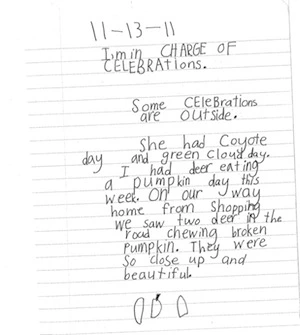 11-13-11
I'm in CHARGE OF
CELEBRATIONS.
Some CEleBrations
are OUTSide.
She had Coyote
day and green Cloud day.
I had deer eating
a pumpkin day this
week. On our way
home from Shopping
we saw two deer in the
road chewing broken
Pumpkin. They were
So close up and
beautiful.